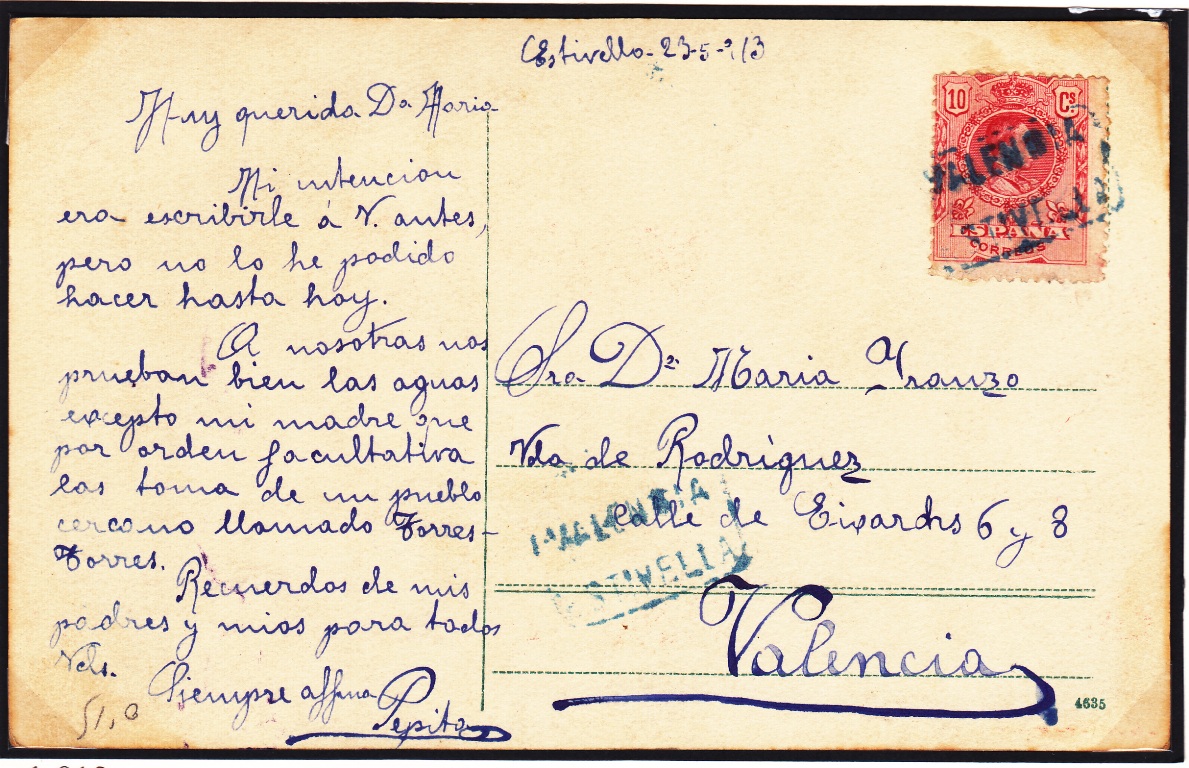 Estivella-23-5-913
Muy querida Da Maria
Mi intencion
era escribirle á V. antes,
pero no lo he podido
hacer hasta hoy.
A nosotras nos
prueban bien las aguas
excepto mi madre que
por orden facultativa
las toma de un pueblo
cercano llamado Torres-
Torres.
Recuerdos de mis
padres y mios para todos
Vds.
Siempre affma
Pepita
51,0
10 Cs
VALENCIA
ESTIVELLA
ESPAÑA
CORREOS
Sra Da Maria Yranzo
Vda de Rodriguez
Calle de 6 y 8
Valencia
VALENCIA
ESTIVELLA
4635